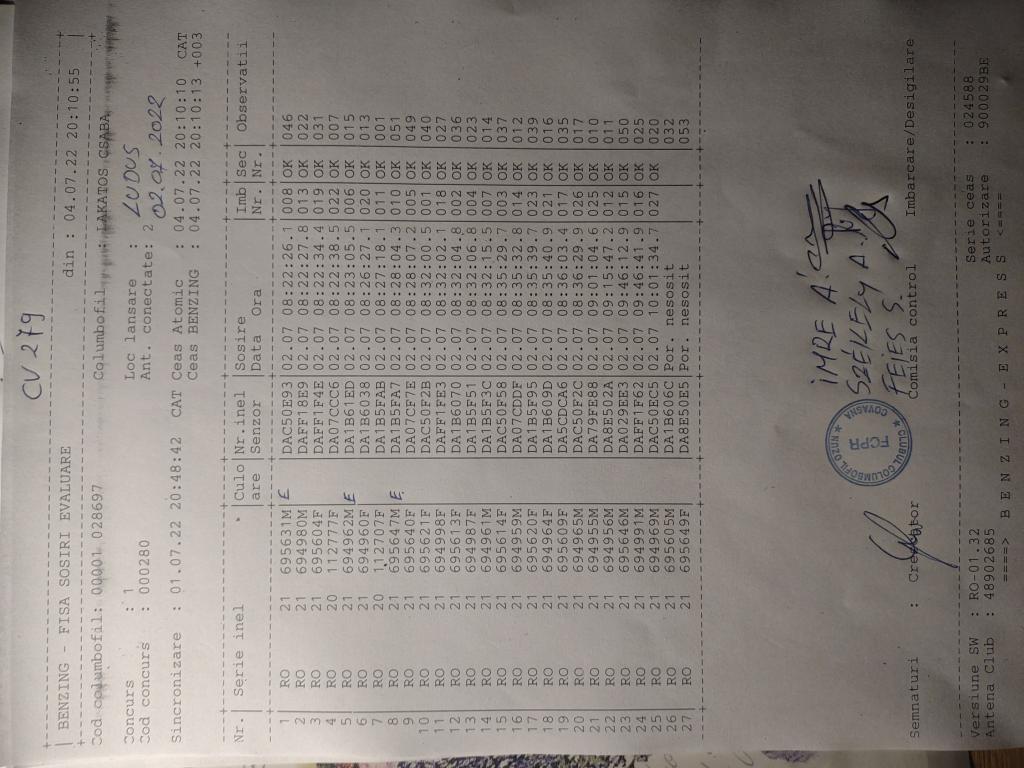 CV 279
BENZING - FISA SOSIRI EVALUARE din : 04.07.22 20:10:55
Cod columbofil: 00001 028697 Columbofil : LAKATOS CSABA
Concurs : 1 Loc lansare : LUDUS
Cod concurs : 000280 Ant. conectate: 2 02.07.2022
Sincronizare : 01.07.22 20:48:42 CAT Ceas Atomic : 04.07.22 20:10:10 CAT
Ceas BENZING : 04.07.22 20:10:13 +003
Nr. | Serie inel | Culo | Nr.inel | Sosire | Imb | Sec | Observatii
are | Senzor | Data Ora | Nr. | Nr. |
1 RO 21 695631M E DAC50E93 02.07 08:22:26.1 008 OK 046
2 RO 21 694980M DAFF18E9 02.07 08:22:27.8 013 OK 022
3 RO 21 695604F DAFF1F4E 02.07 08:22:34.4 019 OK 031
4 RO 20 112777F DA07CCC6 02.07 08:22:38.5 022 OK 007
5 RO 21 694962M E DA1B61ED 02.07 08:23:05.5 006 OK 015
6 RO 21 694960F DA1B6038 02.07 08:26:27.1 020 OK 013
7 RO 20 112707F DA1B5FAB 02.07 08:27:18.1 011 OK 001
8 RO 21 695647M E DA1B5FA7 02.07 08:28:04.3 010 OK 051
9 RO 21 695640F DA07CF7E 02.07 08:28:07.2 005 OK 049
10 RO 21 695621F DAC50F2B 02.07 08:32:00.5 001 OK 040
11 RO 21 694998F DAFF1FE3 02.07 08:32:02.1 018 OK 027
12 RO 21 695613F DA1B6070 02.07 08:32:04.8 002 OK 036
13 RO 21 694987F DA1B5F51 02.07 08:32:06.6 004 OK 023
14 RO 21 694961M DA1B5F3C 02.07 08:32:15.5 007 OK 014
15 RO 21 695614F DAC50F58 02.07 08:35:29.7 003 OK 037
16 RO 21 694959M DA07CDDF 02.07 08:35:32.8 014 OK 012
17 RO 21 695620F DA1B5F95 02.07 08:35:39.7 023 OK 039
18 RO 21 694964F DA1B609D 02.07 08:35:40.9 021 OK 016
19 RO 21 695609F DA5CDCA6 02.07 08:36:03.4 017 OK 035
20 RO 21 694965M DAC50F2C 02.07 08:36:29.9 026 OK 017
21 RO 21 694955M DA79FE88 02.07 09:01:04.6 025 OK 010
22 RO 21 694956M DA8E502A 02.07 09:15:47.2 012 OK 011
23 RO 21 695646M DA029EE3 02.07 09:46:12.9 015 OK 050
24 RO 21 694991M DAFF1F62 02.07 09:46:41.9 016 OK 025
25 RO 21 694969M DAC50EC5 02.07 10:01:34.7 027 OK 020
26 RO 21 695605M DA1B606C Por. nesosit 032
27 RO 21 695649F DA8E50E5 Por. nesosit 053
IMRE A.
SZÉKELY A.
FEJES S.
CLUBUL COLUMBOFIL OZUN
FCPR
COVASNA
Semnaturi : Crescator Comisia control Imbarcare/Desigilare
Versiune SW : RO-01.32 Serie ceas : 024588
Antena Club : 48902685 Autorizare : 900029BE
====> B E N Z I N G - E X P R E S S <====